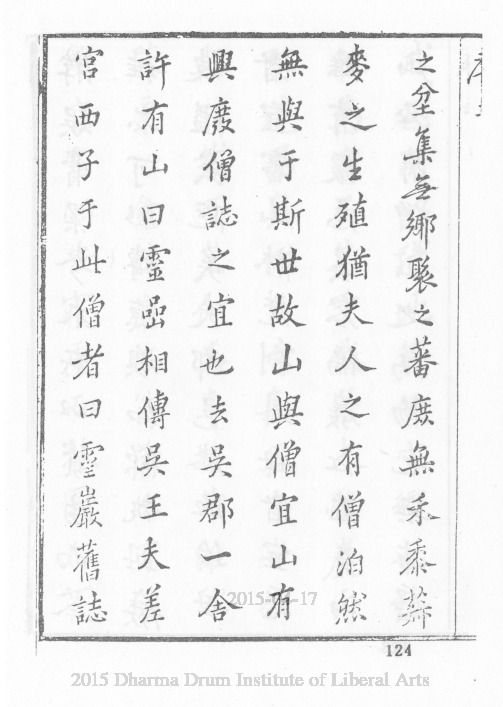 之坌集無鄉聚之蕃庶無禾黍蕎
麥之生殖猶夫人之有僧泊然
無與于斯世故山與僧宜山有
興廢僧誌之宜也去吳郡一舍
許有山曰靈嵒相傳吳王夫差
宮西子于此僧者曰靈巖舊誌
124
2015-  -17
2015 Dharma Drum Institute of Liberal Arts